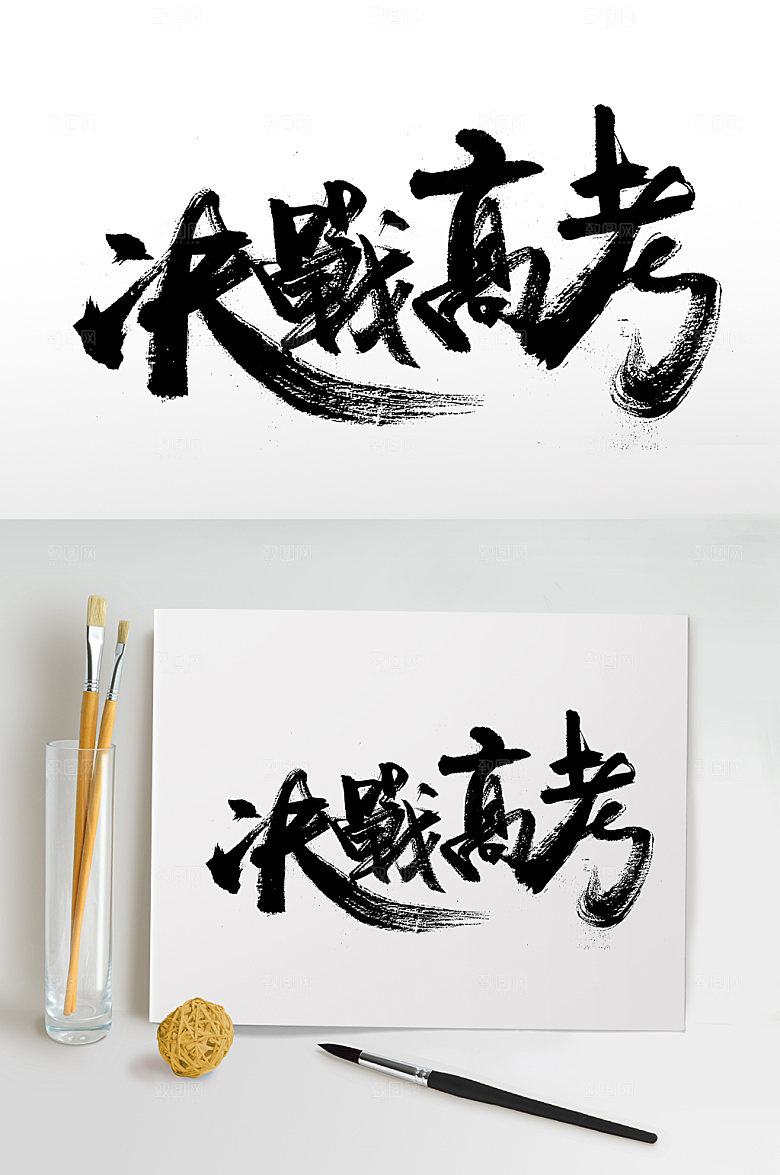 决戰高考
决戰高考